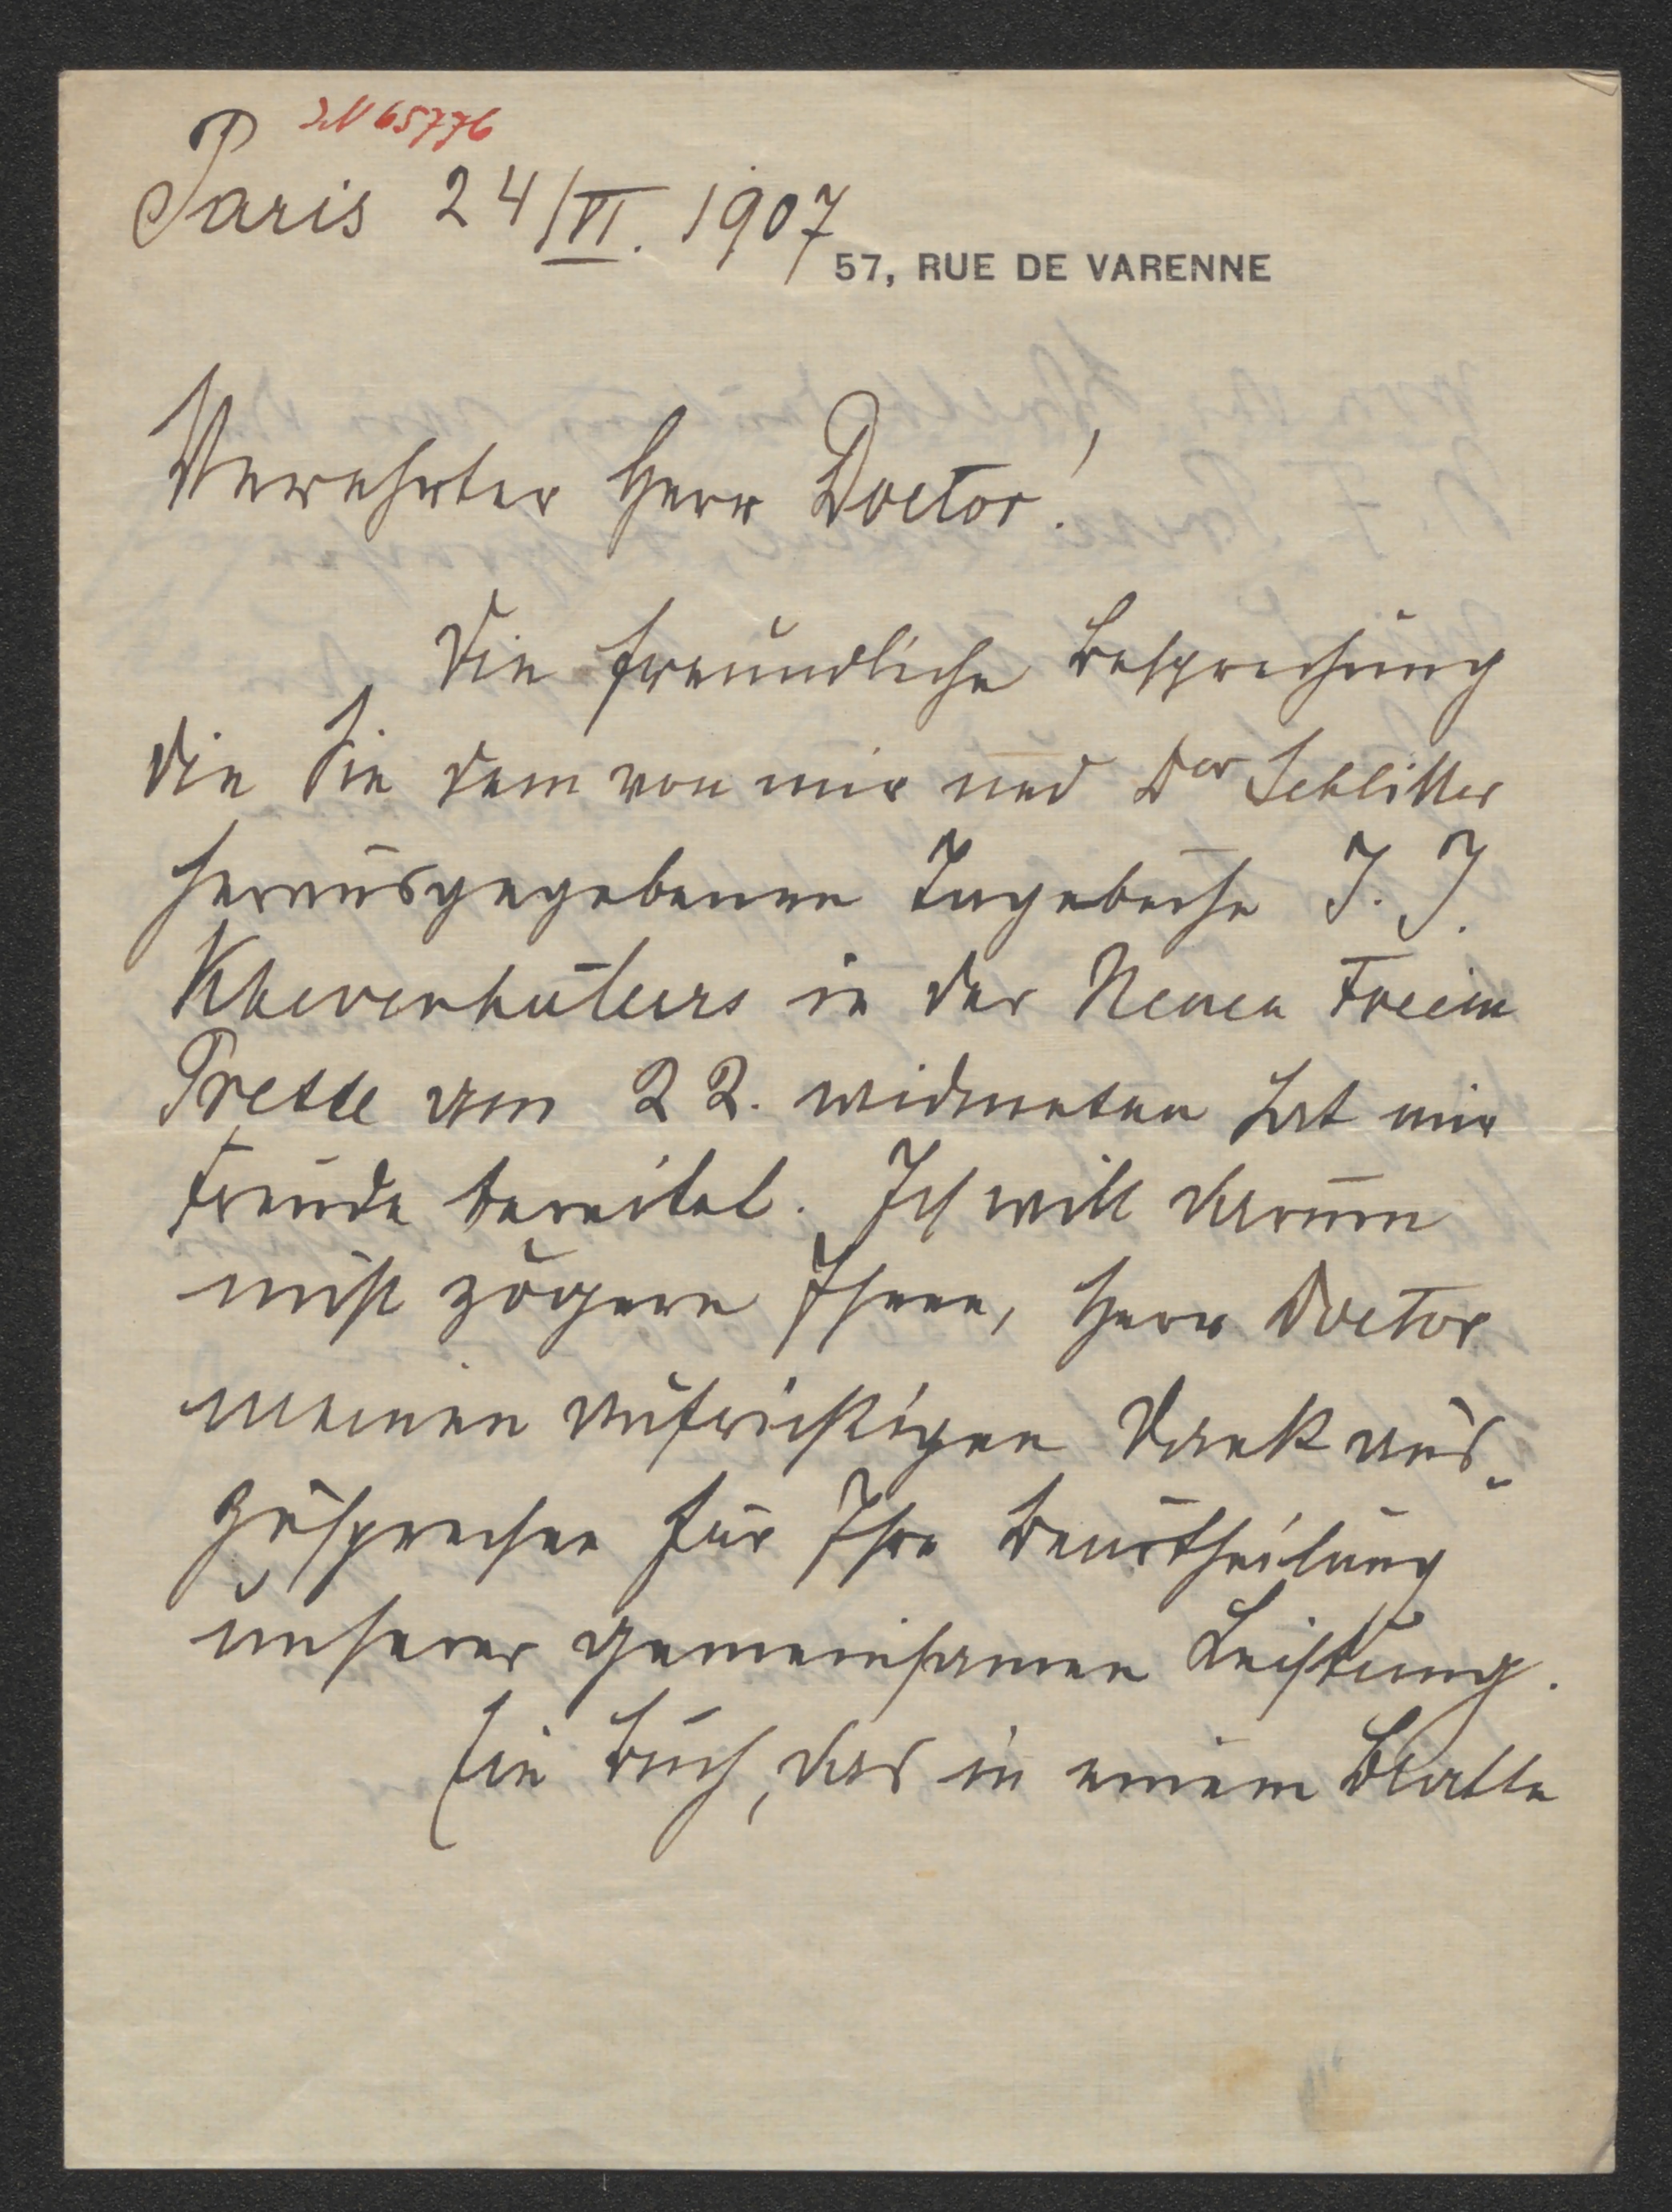 IN 65776
Paris 24/VI. 1907
57, RUE DE VARENNE
Verehrter Herr Doctor!
Die freundliche Besprechung
die Sie dem von mir und Dor Schlitter
herausgegebenen Tagebuche J. J.
Khevenhüllers in der Neuen Freien
Presse vom 22. widmeten hat mir
Freude bereitet. Ich will darum
nicht zögern Ihnen, Herr Doctor
meinen aufrichtigen Dank aus-
zusprechen für Ihre Beurtheilung
unserer gemeinsamen Leistung.
Ein Buch, das in einem Blatte